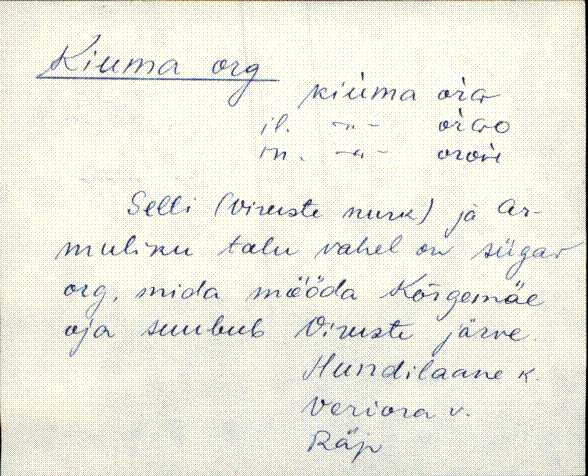 Kiuma org
kiuma oŕʁ
il. -"- oŕʁo
in. -"- orove
Selli (Viruste nurk) ja Ar-
muliku talu vahel on sügav
org, mida mööda Kõrgemäe
oja suubub Viruste järve.
Hundilaane k.
Veriora v.
Räp